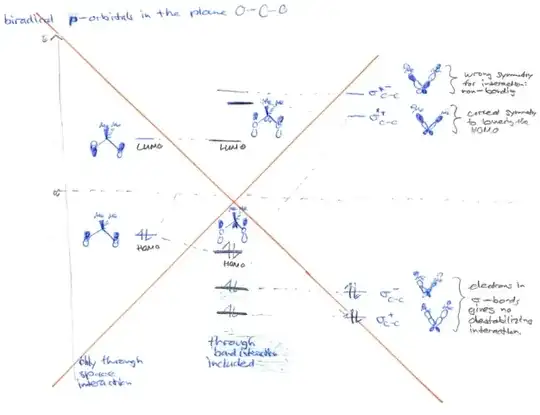 biradical p-orbitals in the plane O-C-O
E
wrong symmetry
for interaction:
non-bonding
σ*⁻
C-C
σ*⁺
C-C
correct symmetry
to lowering the
HOMO
Me Me
LUMO
LUMO
Me Me
HOMO
Me Me
HOMO
σ⁻
C-C
σ⁺
C-C
electrons in
σ-bonds
gives no
destabilizing
interaction.
only through
space
interaction
through
bond interaction
included